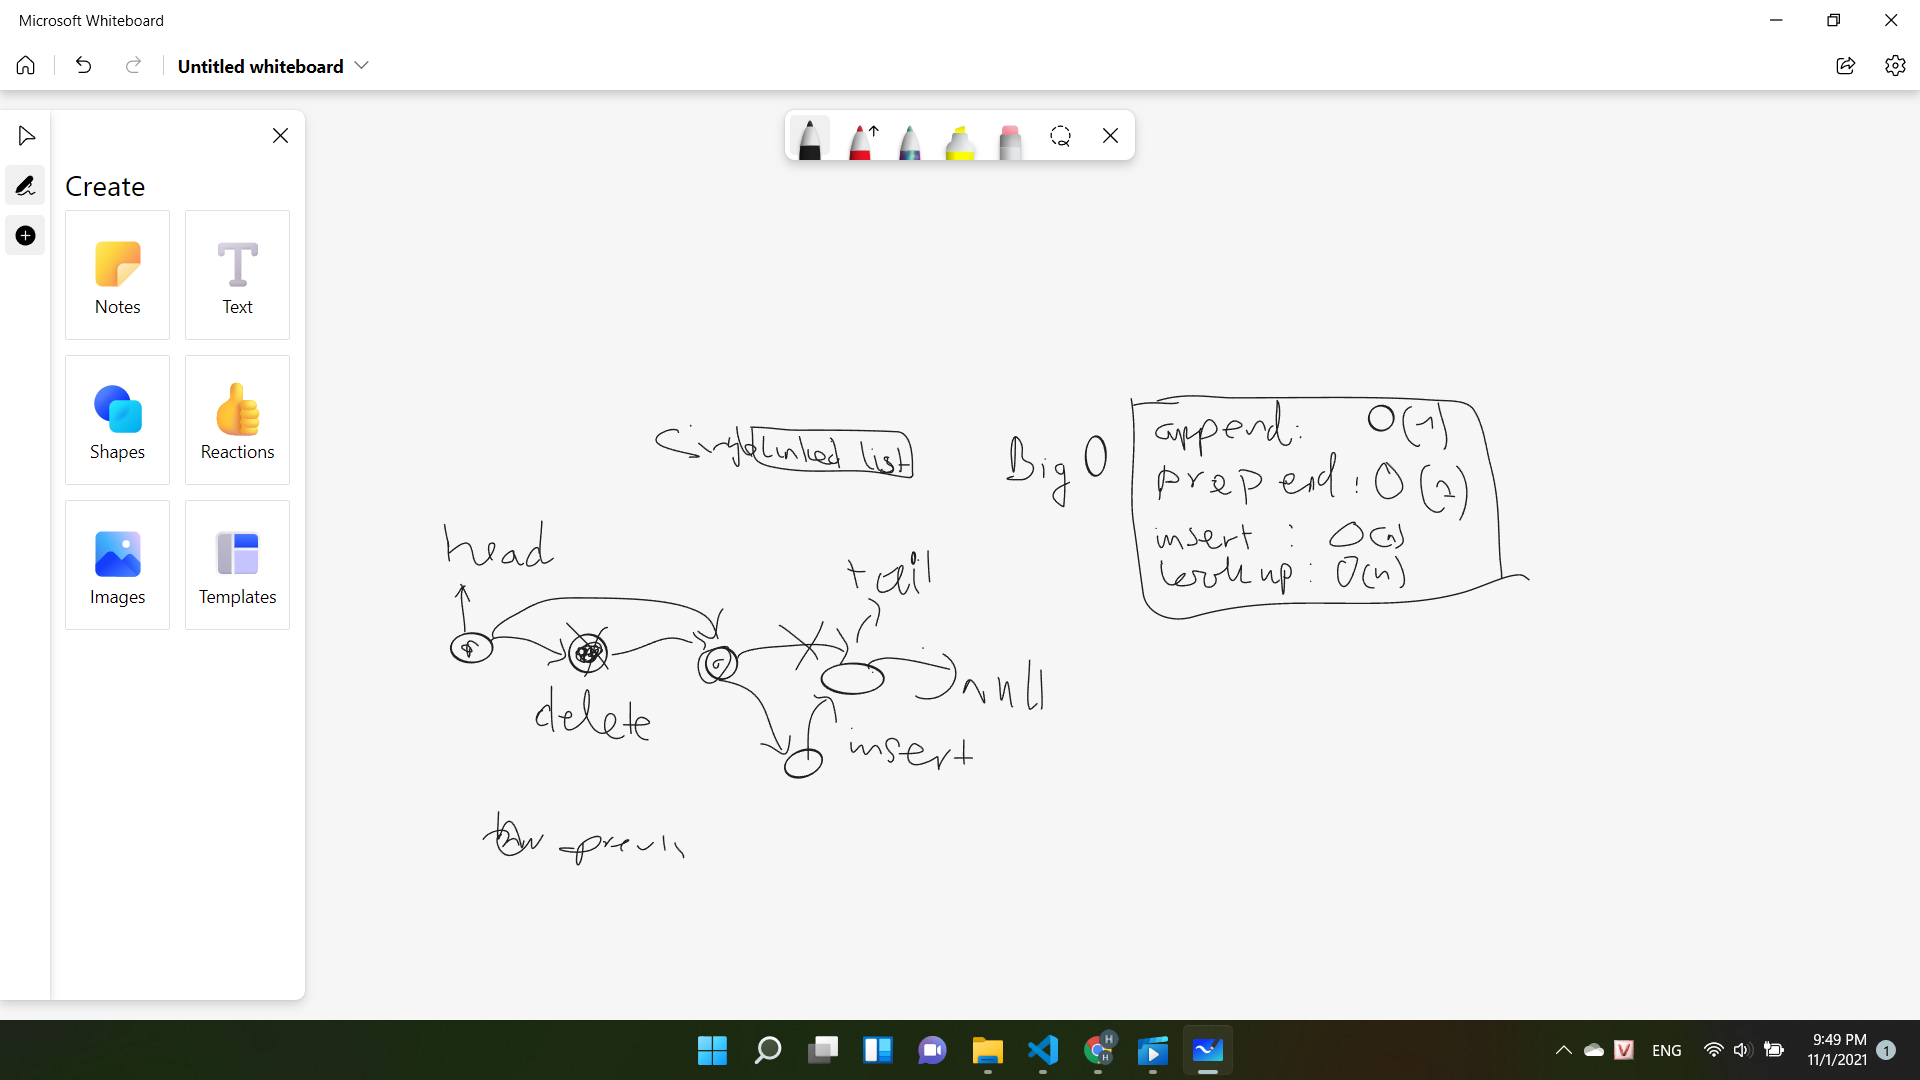 Microsoft Whiteboard
Untitled whiteboard
Create
Notes
Text
Shapes
Reactions
Images
Templates
Single Linked list
Big O
append: O(1)
prepend: O(1)
insert : O(n)
lookup: O(n)
head
tail
null
delete
insert
ENG
9:49 PM
11/1/2021
1